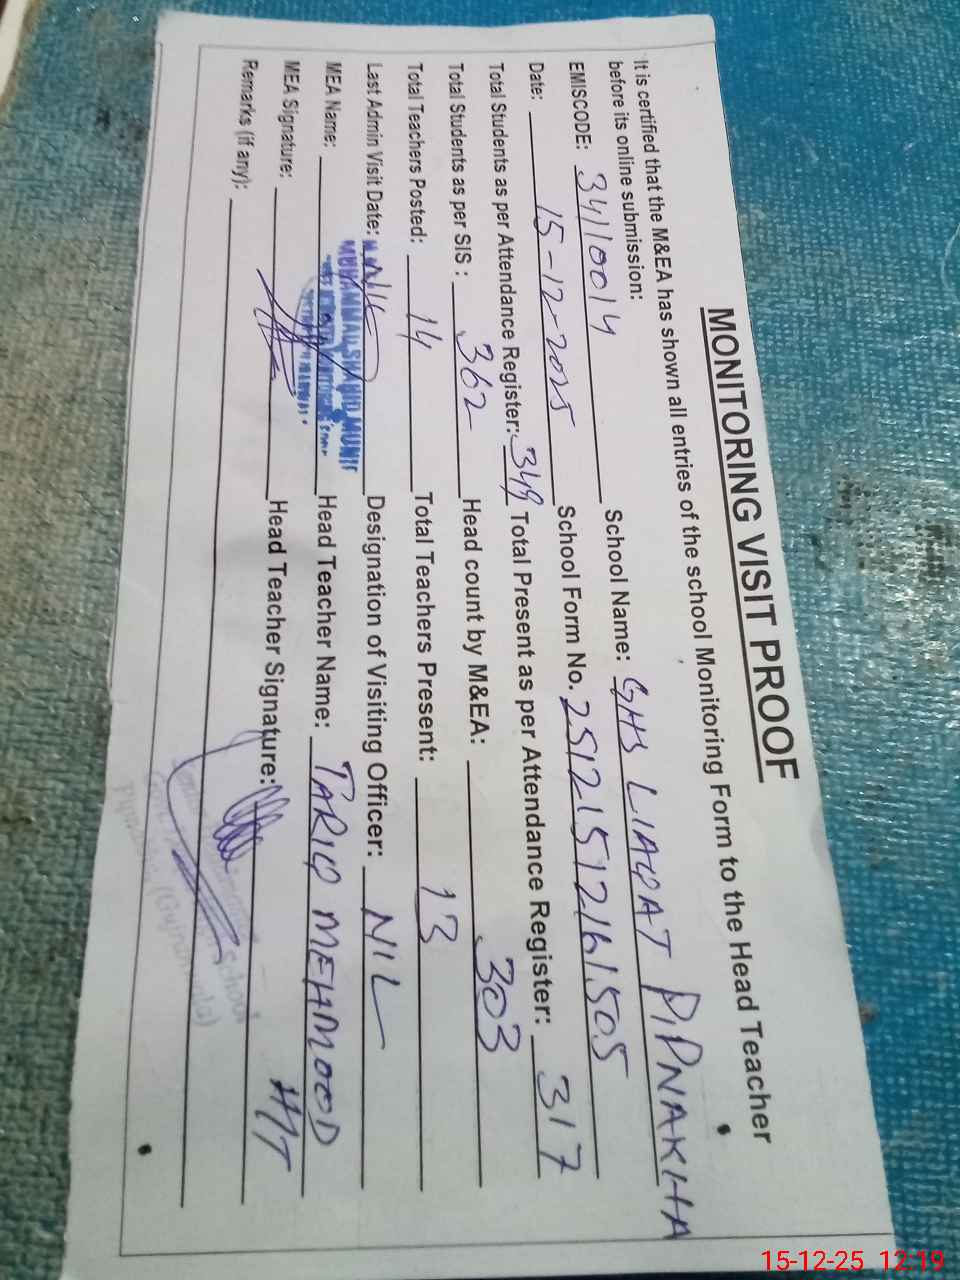 MONITORING VISIT PROOF
It is certified that the M&EA has shown all entries of the school Monitoring Form to the Head Teacher
before its online submission:
EMISCODE: 34110014 School Name: GHS LIAQAT PIPNAKHA
Date: 15-12-2025 School Form No. 25121512161505
Total Students as per Attendance Register: 349 Total Present as per Attendance Register: 317
Total Students as per SIS : 362 Head count by M&EA: 303
Total Teachers Posted: 14 Total Teachers Present: 13
Last Admin Visit Date: NIL Designation of Visiting Officer: NIL
MEA Name: MUHAMMAD SHAHID MUNIR Head Teacher Name: TARIQ MEHMOOD
MEA Signature: Head Teacher Signature: HT
Remarks (if any):
School
(Gujranwala)
15-12-25 12:19